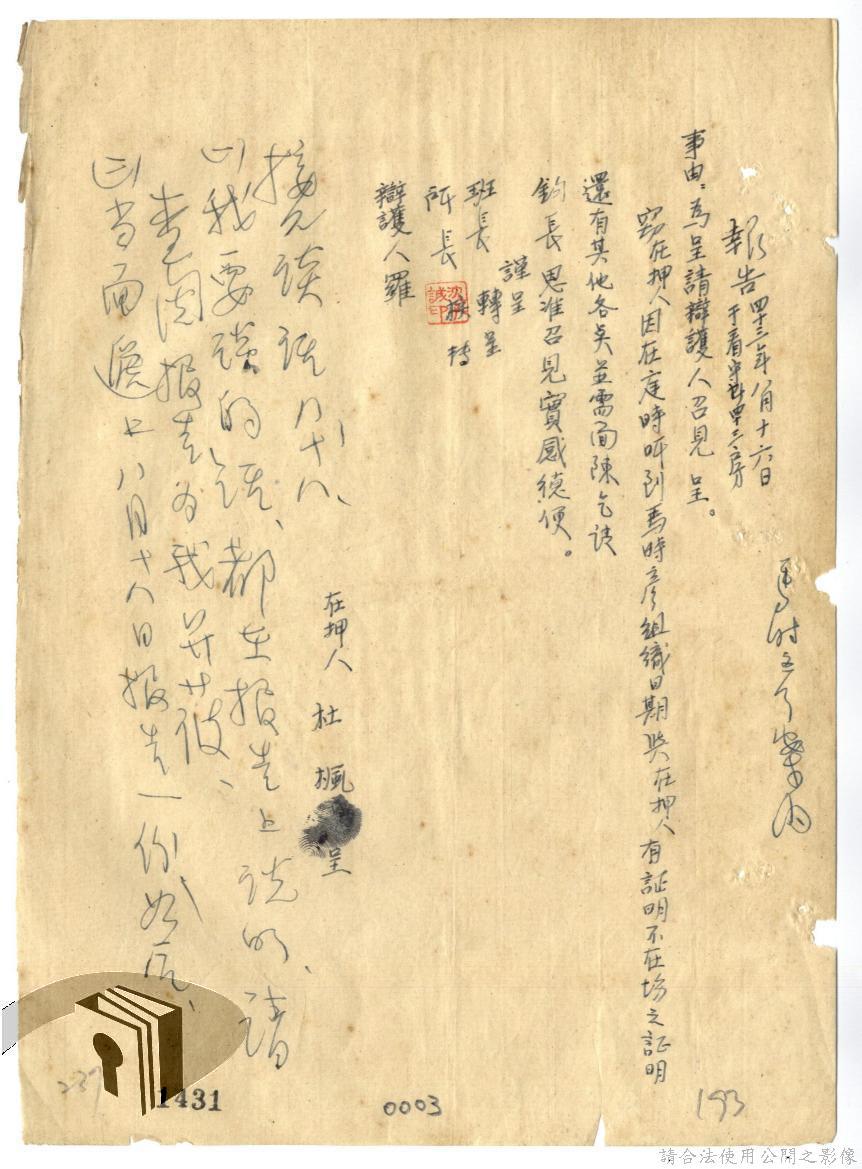 馬時彥案內
報告 四十三年八月十六日
于看守所 三房
事由：為呈請辯護人召見 呈。
竊在押人因在庭時聞到馬時彥組織日期與在押人有証明不在場之証明
還有其他各點並需面陳乞請
鈞長恩准召見實感德便。
謹呈
班長 轉呈
所長 轉
辯護人羅
在押人 杜 楓 呈
接見談話八、十八、
(一)我要談的話、都在報告上說明、請
查閱報告為我
(二)當面遞上八月十八日報告一份如后、
1431
0003
193
237
請合法使用公開之影像